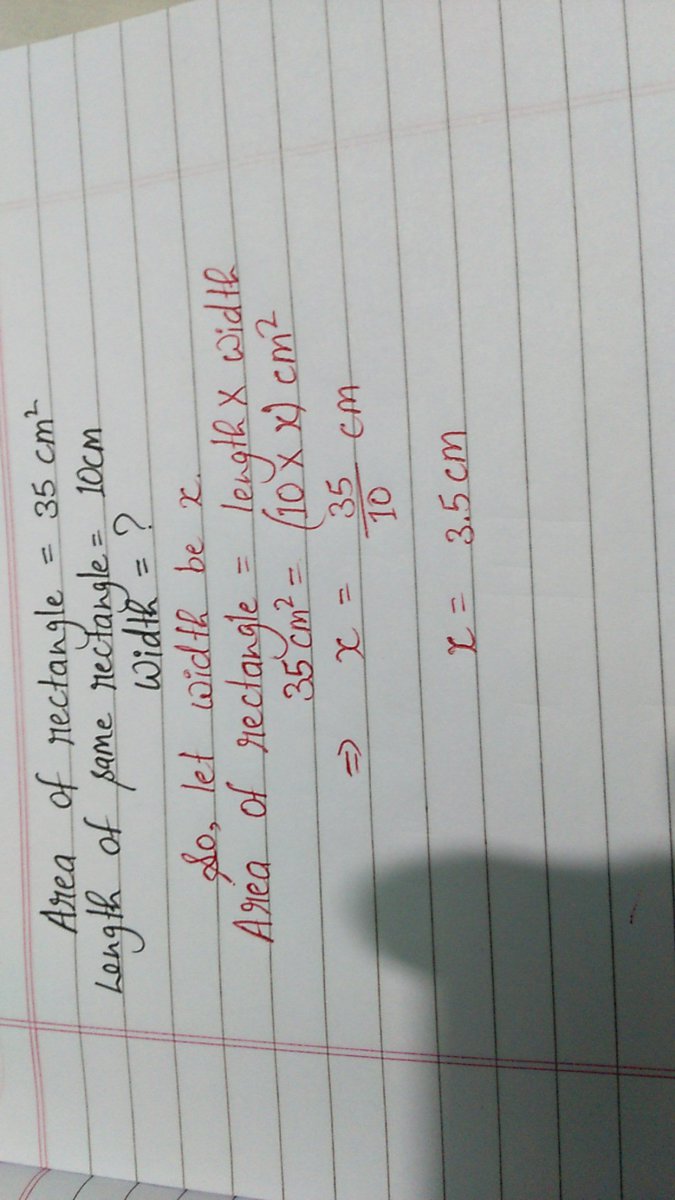 Area of rectangle = 35 cm²
Length of same rectangle = 10cm
Width = ?
So, let width be x.
Area of rectangle = length × width
35 cm² = (10 × x) cm²
⇒ x = 35/10 cm
x = 3.5 cm